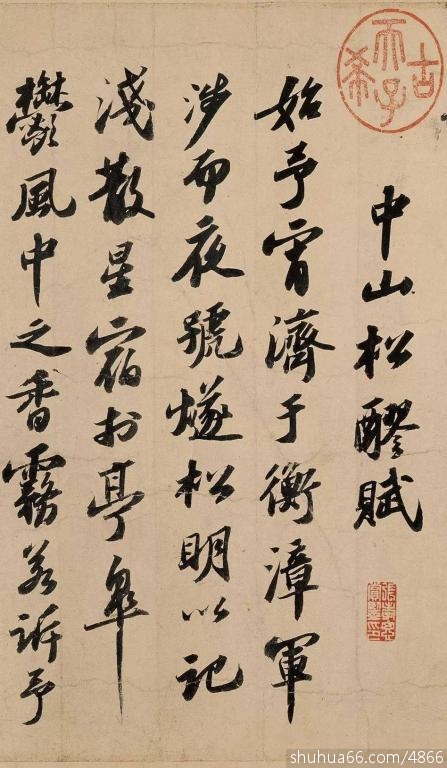 古希天子
中山松醪賦
始予宵濟于衡漳軍
涉而夜號燧松明以記
淺散星宿於亭皋
鬱風中之香霧若訴予
shuhua66.com/4866